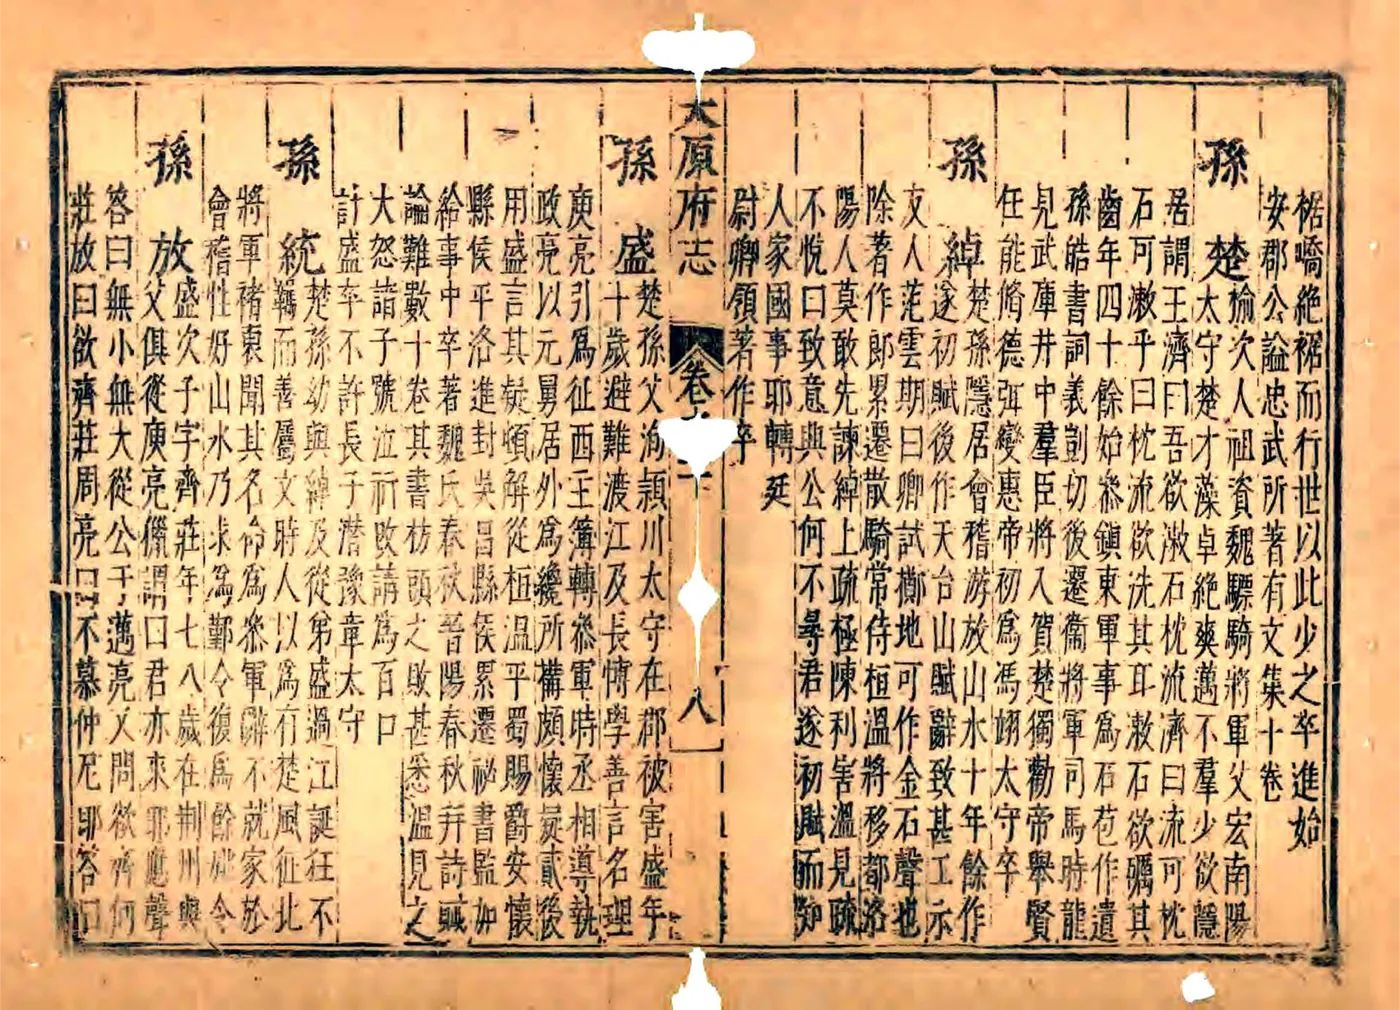 裾嶠絶裾而行世以此少之卒進始
安郡公謚忠武所著有文集十卷
孫楚榆次人祖資魏驃騎將軍父宏南陽
太守楚才藻卓絶爽邁不羣少欲隱
居謂王濟曰吾欲漱石枕流濟曰流可枕
石可漱乎曰枕流欲洗其耳漱石欲礪其
齒年四十餘始叅鎮東軍事爲石苞作遺
孫皓書詞義剴切後遷衞將軍司馬時龍
見武庫井中羣臣將入賀楚獨勸帝舉賢
任能脩德弭變惠帝初爲馮翊太守卒
孫綽楚孫隱居會稽游放山水十年餘作
遂初賦後作天台山賦辭致甚工示
友人范雲期曰卿試擲地可作金石聲也
除著作郎累遷散騎常侍桓溫將移都洛
陽人莫敢先諫綽上疏極陳利害溫見疏
不悅曰致意興公何不尋君遂初賦而知
人家國事耶轉廷
尉卿領著作卒
太原府志 卷 八
孫盛楚孫父洵潁川太守在郡被害盛年
十歲避難渡江及長博學善言名理
庾亮引爲征西主簿轉叅軍時丞相導執
政亮以元舅居外爲纔所搆頗懷疑貳後
用盛言其疑頓解從桓溫平蜀賜爵安懷
縣侯平洛進封吳昌縣侯累遷祕書監加
給事中卒著魏氏春秋晉陽春秋幷詩賦
論難數十卷其書枋頭之敗甚悉溫見之
大怒諸子號泣祈改請爲百口
計盛卒不許長子潛豫章太守
孫統楚孫幼與綽及從弟盛過江誕狂不
羈而善屬文時人以爲有楚風征北
將軍褚裒聞其名命爲叅軍辭不就家於
會稽性好山水乃求爲鄞令復爲餘姚令
孫放盛次子字齊莊年七八歲在荆州與
父俱從庾亮獵謂曰君亦來耶應聲
答曰無小無大從公于邁亮又問欲齊何
莊放曰欲齊莊周亮曰不慕仲尼耶答曰